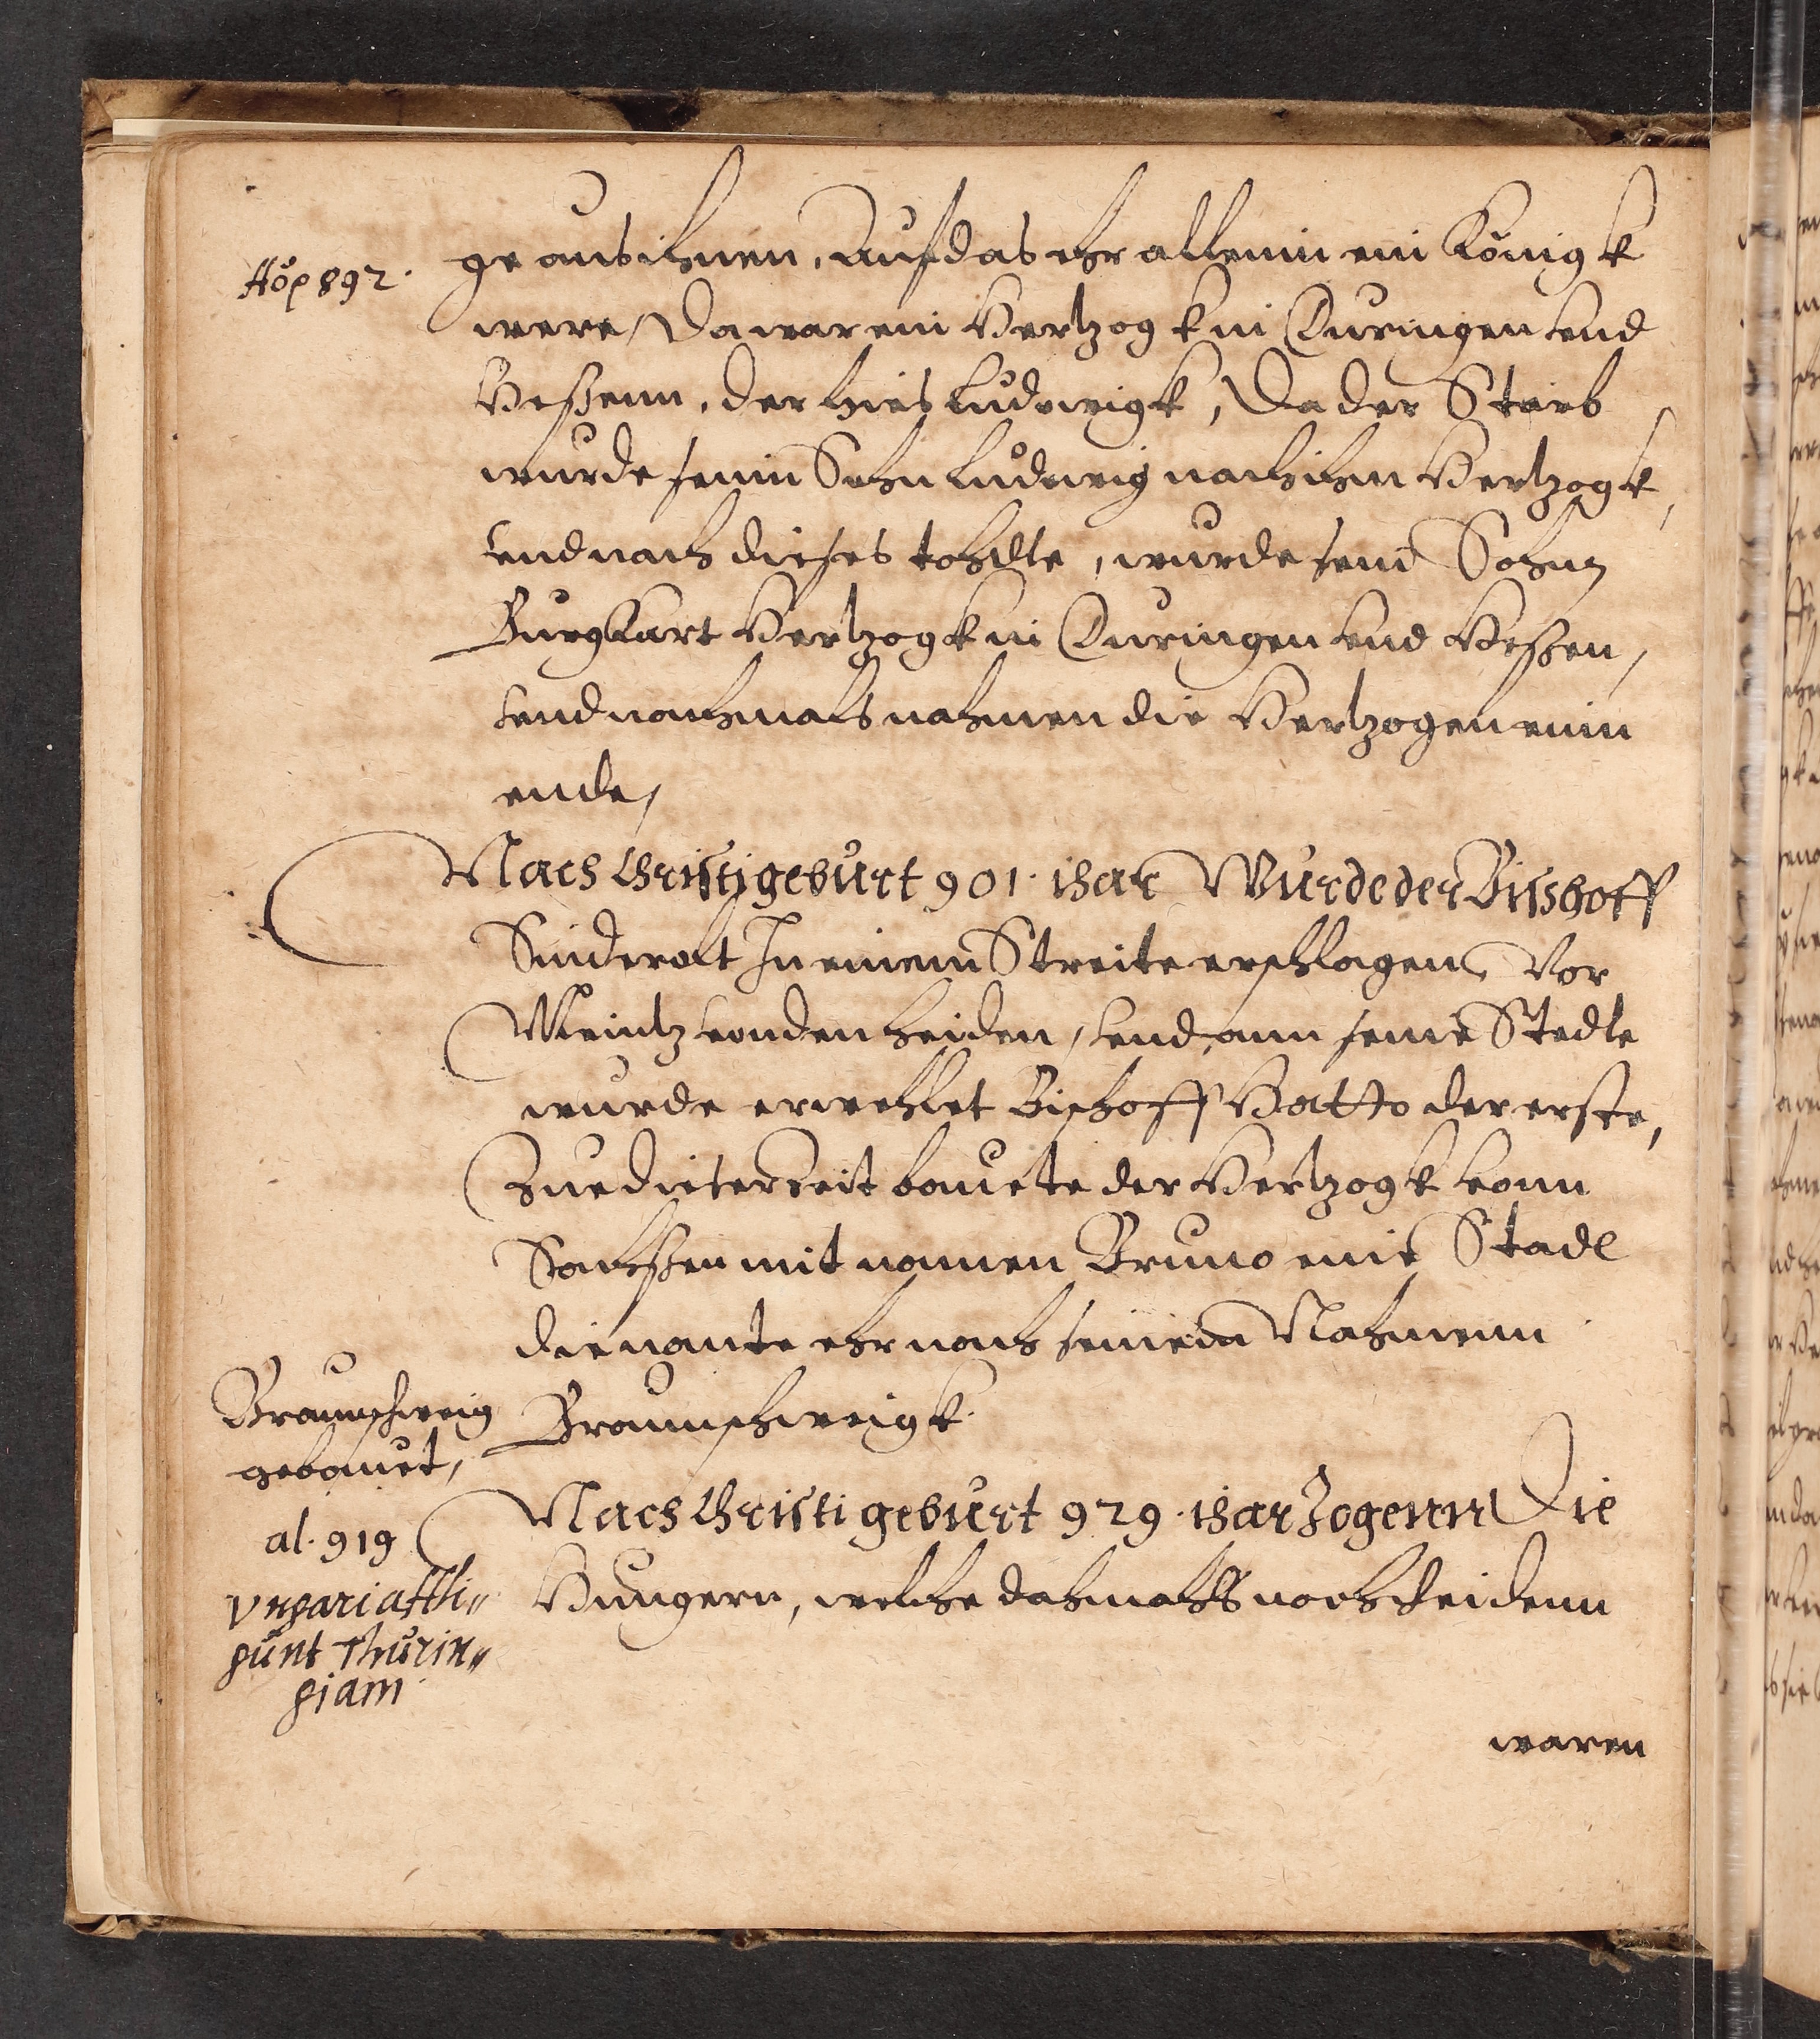 ge aus ihnen, Auf das ehr allein ein Königk
Höp 892.
were, Da war ein Hertzogk in Duringen und
Heßenn, der hies Ludwigk, Da der Starb
wurde sein Sohn Ludwig nach ihm Hertzogk,
und nach dießes tohdte, wurde sein Sohn
Burgkart Hertzogk in Duringen und Heßen,
und nachmals nahmen die Hertzogen ein
ende,
Nach Christi geburt 901. ihar Wurde der Bisshoff
Sinderolt In einem Streite erschlagen, Vor
Meintz von den heiden, und ann seine Stedte
wurde erwehlet Bischoff Hatto der erste,
Zue dieser Zeit bauete der Hertzogk vonn
Sachßen mit namen Bruno eine Stadt
die nante ehr nach seinem Nahmenn
Braunschweigk.
Braunschweig
gebauet,
Nach Christi geburt 929. ihar Zogenn Die
al. 919
Vngari affli„
gunt Thurin„
giam
Hungern, welche dahmahls noch heidenn
waren